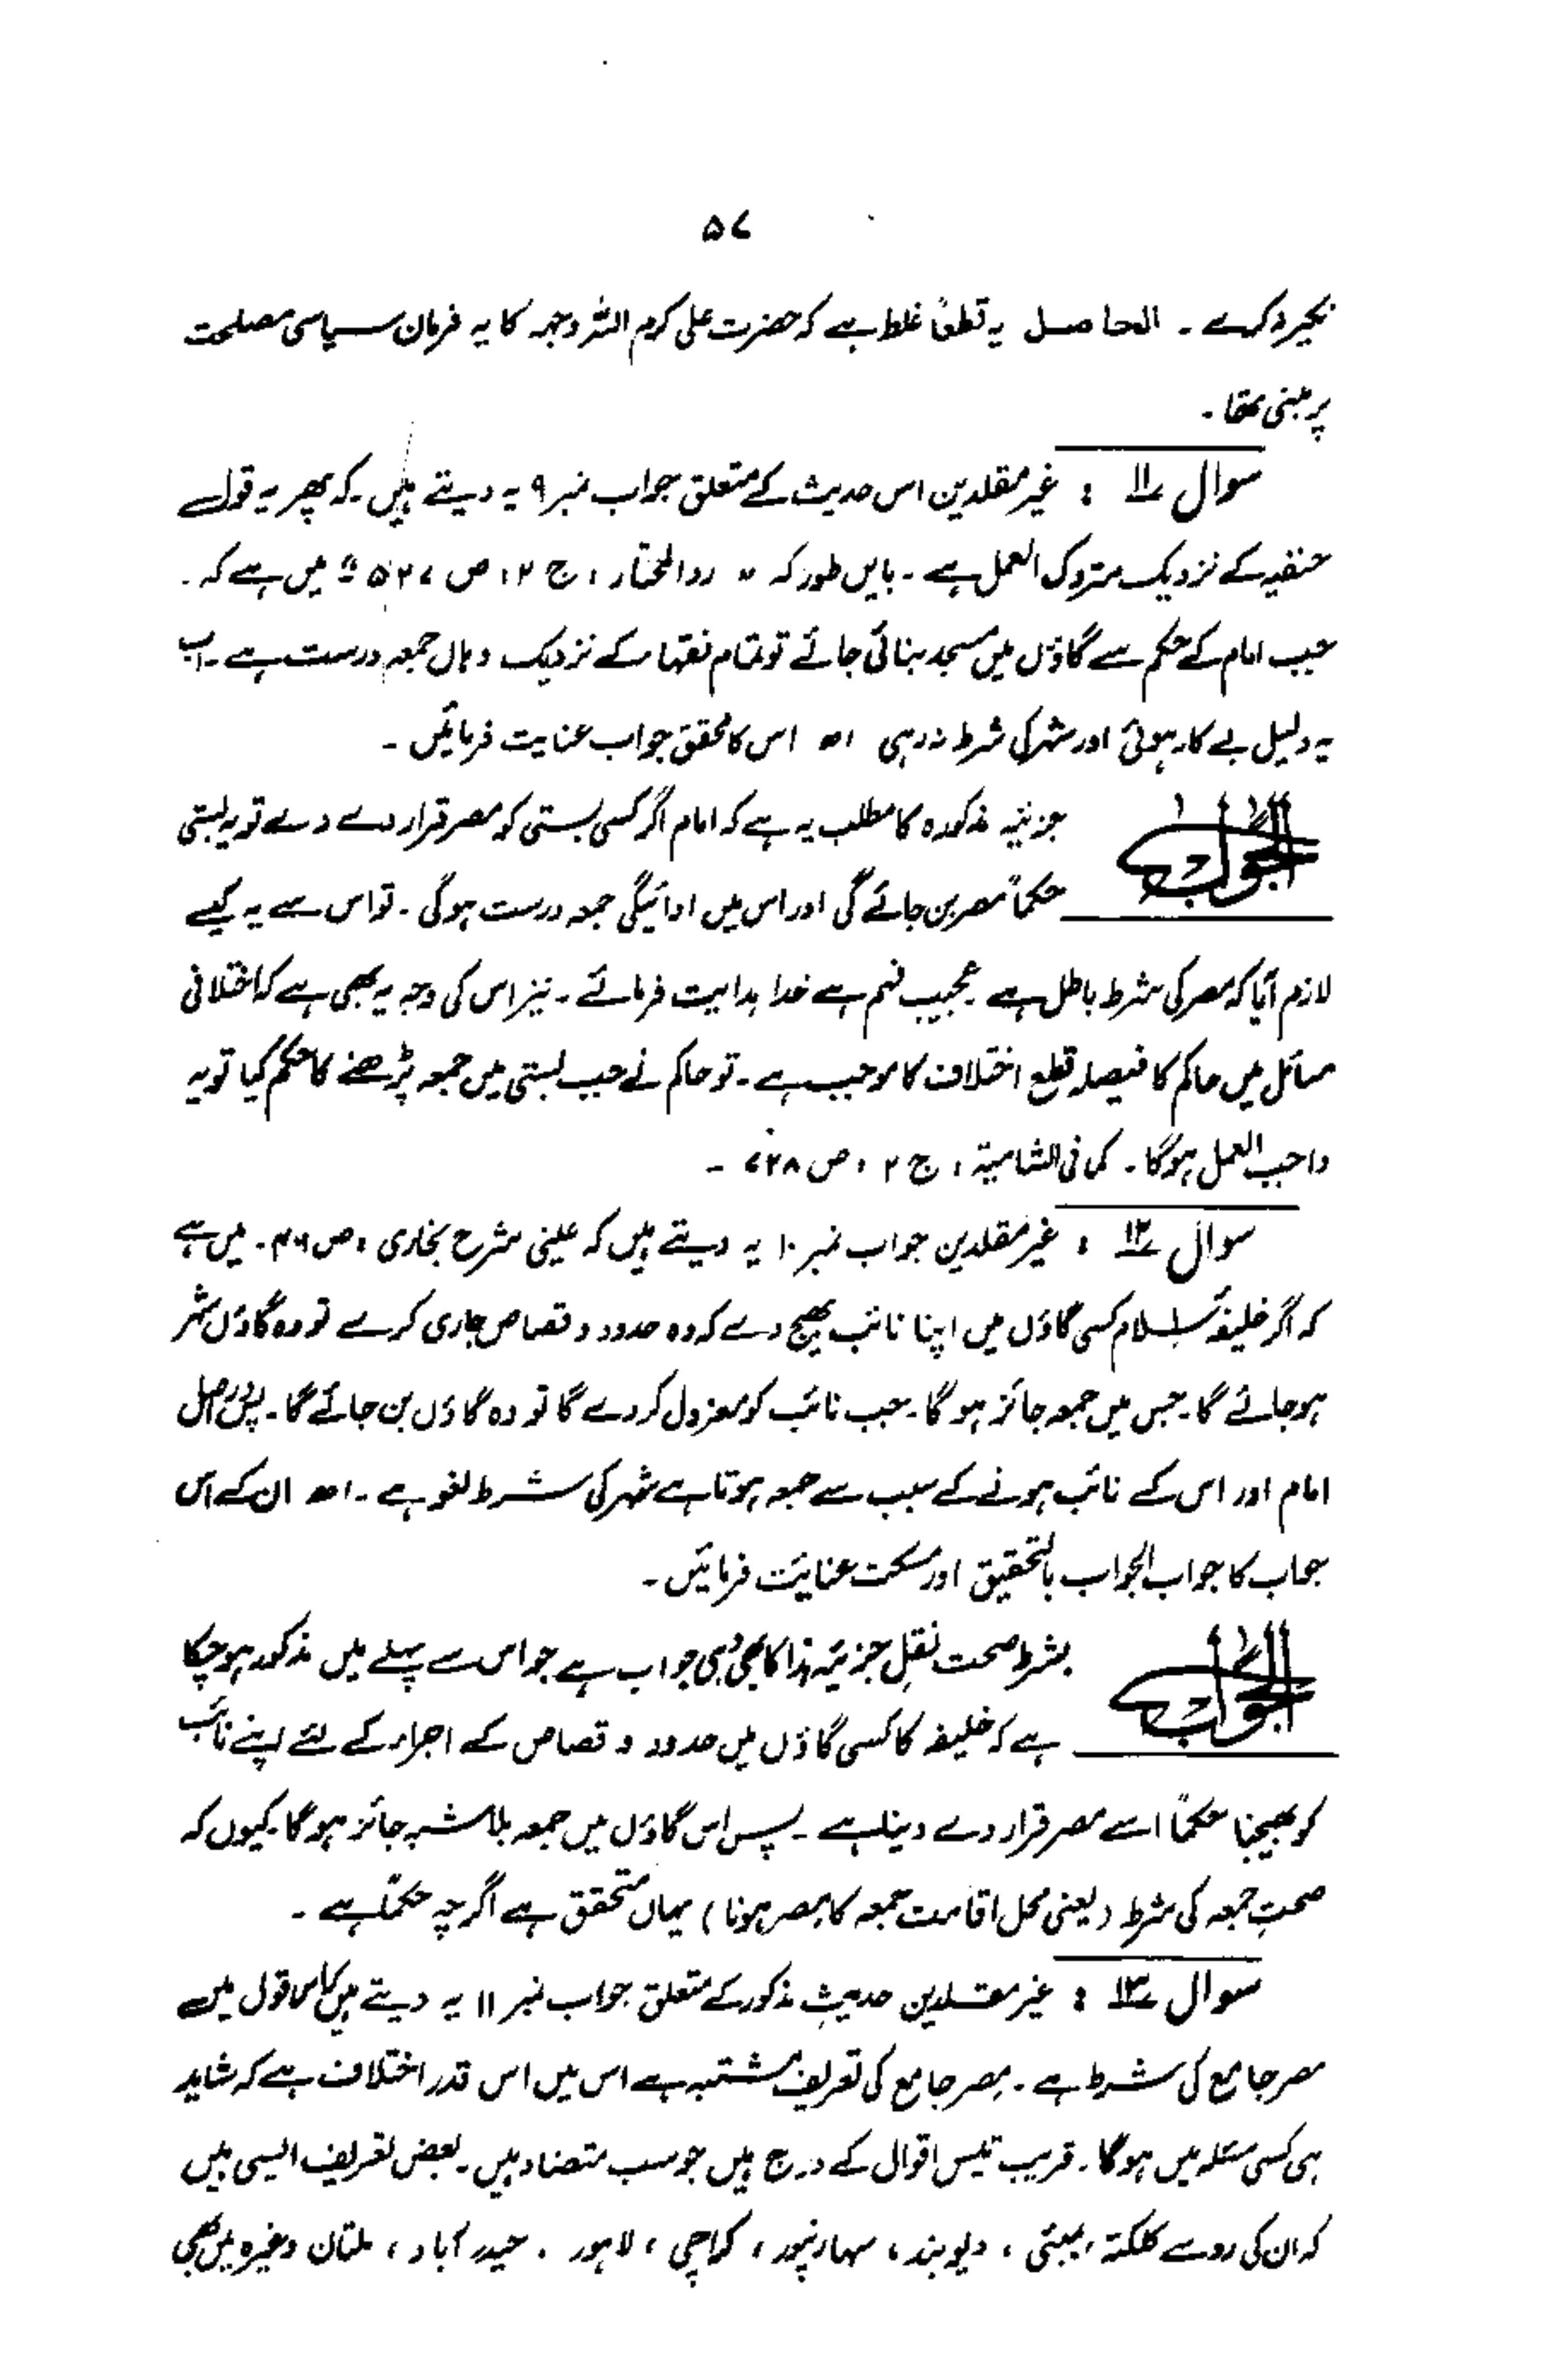 ۵۷
نکیر نہ کرے ۔ الحاصل یہ قطعاً غلط ہے کہ حضرت علی کرم اللہ وجہہ کا یہ فرمان سیاسی مصلحت
پر مبنی تھا ۔
سوال ۱۱ : غیر مقلدین اس حدیث کے متعلق جواب نمبر ۹ یہ دیتے ہیں ۔ کہ پھر یہ قول
حنفیہ کے نزدیک متروک العمل ہے ۔ بایں طور کہ " ردالمختار ، ج ۲ ، ص ۵۲۷ " میں ہے کہ ۔
جب امام کے حکم سے گاؤں میں مسجد بنائی جائے تو تمام فقہاء کے نزدیک وہاں جمعہ درست ہے ۔ اب
یہ دلیل بے کار ہوئی اور شہر کی شرط نہ رہی اھ اس کا محقق جواب عنایت فرمائیں ۔
الجواب
جزئیہ مذکورہ کا مطلب یہ ہے کہ امام اگر کسی بستی کو مصر قرار دے دے تو یہ بستی
حکماً مصر بن جائے گی اور اس میں ادائیگی جمعہ درست ہوگی ۔ تو اس سے یہ کیسے
لازم آیا کہ مصر کی شرط باطل ہے عجیب فہم ہے خدا ہدایت فرمائے ۔ نیز اس کی وجہ یہ بھی ہے کہ اختلافی
مسائل میں حاکم کا فیصلہ قطع اختلاف کا موجب ہے ۔ تو حاکم نے جب بستی میں جمعہ پڑھنے کا حکم کیا تو یہ
واجب العمل ہوگا ۔ کما فی الشامیۃ ، ج ۲ ، ص ۷۲۸ ۔
سوال ۱۲ : غیر مقلدین جواب نمبر ۱۰ یہ دیتے ہیں کہ عینی شرح بخاری ، ص ۔ میں ہے
کہ اگر خلیفۂ اسلام کسی گاؤں میں اپنا نائب بھیج دے کہ وہ حدود و قصاص جاری کرے تو وہ گاؤں شہر
ہو جائے گا ۔ جس میں جمعہ جائز ہوگا ۔ جب نائب کو معزول کر دے گا تو وہ گاؤں بن جائے گا ۔ پس دراصل
امام اور اس کے نائب ہونے کے سبب سے جمعہ ہوتا ہے شہر کی شرط لغو ہے ۔ اھ ان کے اس
جواب کا جواب الجواب بالتحقیق اور مسکت عنایت فرمائیں ۔
الجواب
بشرط صحت نقل جزئیہ ہذا کا بھی وہی جواب ہے جو اس سے پہلے میں مذکور ہو چکا
ہے کہ خلیفہ کا کسی گاؤں میں حدود و قصاص کے اجراء کے لئے اپنے نائب
کو بھیجنا حکماً اسے مصر قرار دے دینا ہے ۔ پس اس گاؤں میں جمعہ بلاشبہ جائز ہوگا ۔ کیوں کہ
صحتِ جمعہ کی شرط (یعنی محل اقامت جمعہ کا مصر ہونا) یہاں متحقق ہے اگرچہ حکماً ہے ۔
سوال ۱۳ : غیر مقلدین حدیثِ مذکور کے متعلق جواب نمبر ۱۱ یہ دیتے ہیں کہ اس قول میں
مصر جامع کی شرط ہے ۔ مصر جامع کی تعریف مشتبہ ہے اس میں اس قدر اختلاف ہے کہ شاید
ہی کسی مسئلہ میں ہوگا ۔ قریب تیس اقوال کے درج ہیں جو سب متضاد ہیں ۔ بعض تعریف ایسی ہیں
کہ ان کی رو سے کلکتہ ، بمبئی ، دیوبند ، سہارنپور ، کراچی ، لاہور ، حیدر آباد ، ملتان وغیرہ میں بھی